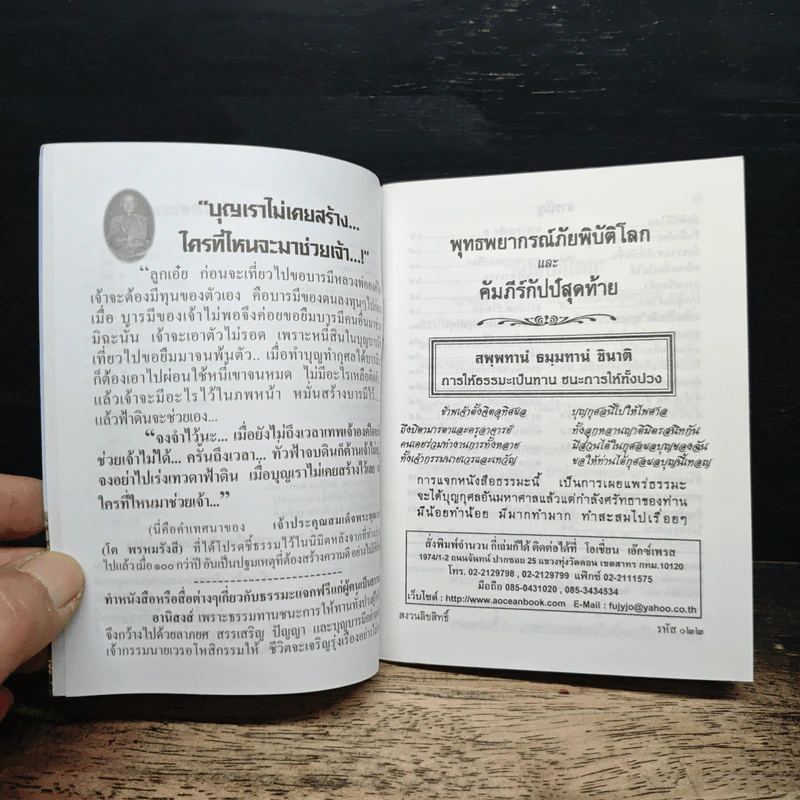 “บุญเราไม่เคยสร้าง...
ใครที่ไหนจะมาช่วยเจ้า...!”
“ลูกเอ๋ย ก่อนจะเที่ยวไปขอบารมีหลวงพ่อองค์ใด
เจ้าจะต้องมีทุนของตัวเอง คือบารมีของตนลงทุนไปก่อน
เมื่อ บารมีของเจ้าไม่พอจึงค่อยขอยืมบารมีคนอื่นมาช่วย
มิฉะนั้น เจ้าจะเอาตัวไม่รอด เพราะหนี้สินในบุญบารมี
เที่ยวไปขอยืมมาจนพ้นตัว.. เมื่อทำบุญทำกุศลได้บารมี
ก็ต้องเอาไปผ่อนใช้หนี้เขาจนหมด ไม่มีอะไรเหลือติดตัว
แล้วเจ้าจะมีอะไรไว้ในภพหน้า หมั่นสร้างบารมีไว้
แล้วฟ้าดินจะช่วยเอง...
“จงจำไว้นะ... เมื่อยังไม่ถึงเวลาเทพเจ้าองค์ใด
ช่วยเจ้าไม่ได้... ครั้นถึงเวลา... ทั่วฟ้าจบดินก็ต้านเจ้าไม่
จงอย่าไปเร่งเทวดาฟ้าดิน เมื่อบุญเราไม่เคยสร้างไว้เลย
ใครที่ไหนมาช่วยเจ้า...”
(นี่คือคำเทศนาของ เจ้าประคุณสมเด็จพระพุฒ
(โต พรหมรังสี) ที่ได้โปรดชี้ธรรมไว้ในนิมิตหลังจากที่ท่าน
ไปแล้วเมื่อ ๑๐๐ กว่าปี อันเป็นปฐมเหตุที่ต้องสร้างความดี
ทำหนังสือหรือสื่อต่างๆเกี่ยวกับธรรมะแจกฟรีแก่ผู้คนเป็น
อานิสงส์ เพราะธรรมทานชนะการให้ทานทั้งปวง
จึงกว้างไปด้วยลาภยศ สรรเสริญ ปัญญา และบุญบารมี
เจ้ากรรมนายเวรอโหสิกรรมให้ ชีวิตจะเจริญรุ่งเรือง
พุทธพยากรณ์ภัยพิบัติโลก
และ
คัมภีร์กัปป์สุดท้าย
สพฺพทานํ ธมฺมทานํ ชินาติ
การให้ธรรมะเป็นทาน ชนะการให้ทั้งปวง
ข้าพเจ้าตั้งจิตอุทิศผล บุญกุศลนี้ไปให้ไพศาล
ถึงบิดามารดาและครูอาจารย์ ทั้งลูกหลานญาติมิตรสนิทกัน
คนเคยร่วมทำงานการทั้งหลาย มีส่วนได้ในกุศลผลบุญของฉัน
ทั้งเจ้ากรรมนายเวรและเทวัญ ขอให้ท่านได้กุศลผลบุญนี้เทอญ
การแจกหนังสือธรรมะนี้ เป็นการเผยแพร่ธรรมะ
จะได้บุญกุศลอันมหาศาลแล้วแต่กำลังศรัทธาของท่าน
มีน้อยทำน้อย มีมากทำมาก ทำสะสมไปเรื่อยๆ
สั่งพิมพ์จำนวน กี่เล่มก็ได้ ติดต่อได้ที่ โอเชี่ยน เอ๊กซ์เพรส
1974/1-2 ถนนจันทน์ ปากซอย 25 แขวงทุ่งวัดดอน เขตสาทร กทม.10120
โทร. 02-2129798 , 02-2129799 แฟ็กซ์ 02-2111575
มือถือ 085-0431020 , 085-3434534
เว็บไซต์ : http://www.aoceanbook.com E-Mail : fujyjo@yahoo.co.th
สงวนลิขสิทธิ์
รหัส ๐๒๒